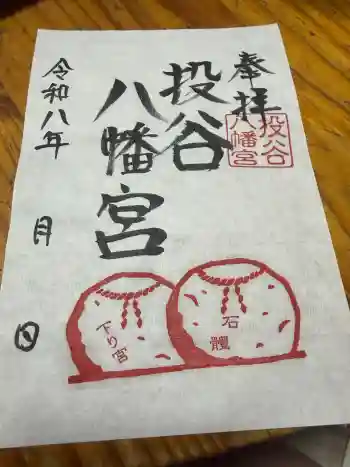 奉拝
投谷
八幡宮
投谷
八幡宮
令和八年
月
日
石體
下り宮